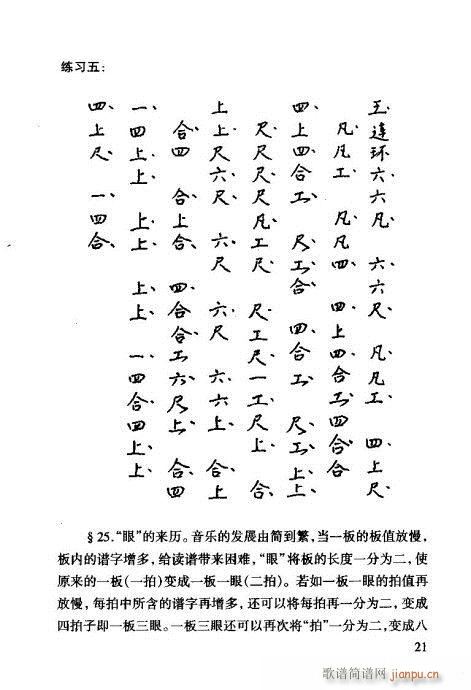 练习五：
玉连环六、六凡、六、六尺、凡、凡工、四、上尺、
凡、凡工、凡、凡四、四、上四、合工、四合、合
四、上四、合工、尺、工、合四、合工、尺、工、合、上、
尺、尺尺、尺凡、工尺、尺、工尺、一工、尺上、合、
上上、尺六、尺、六、尺六、尺六、六上、合、上
合、四合、上合、四、合合、工六、尺上、合、四
一、四上、上、上、上、上、上、一、四合、四上、上、
四、上尺、一、四合、
§25.“眼”的来历。音乐的发展由简到繁，当一板的板值放慢，
板内的谱字增多，给读谱带来困难，“眼”将板的长度一分为二，使
原来的一板(一拍)变成一板一眼(二拍)。若如一板一眼的拍值再
放慢，每拍中所含的谱字再增多，还可以将每拍再一分为二，变成
四拍子即一板三眼。一板三眼还可以再次将“拍”一分为二，变成八
21
歌谱简谱网
jianpu.cn